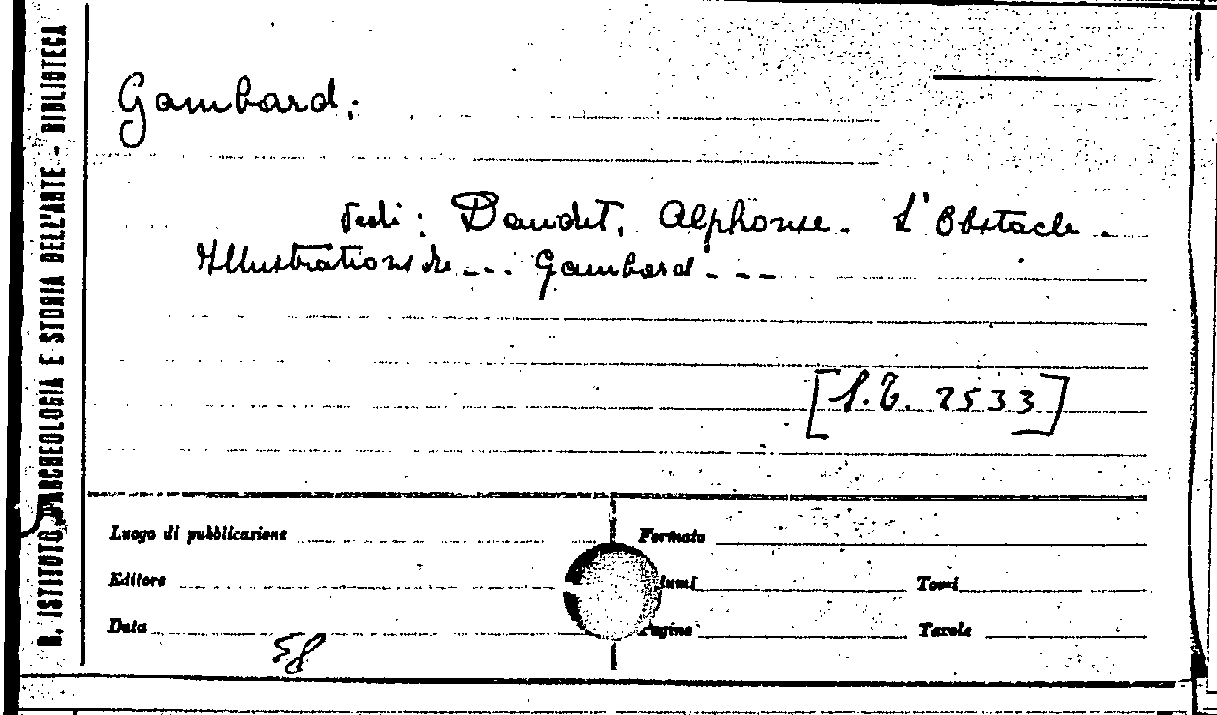 R. ISTITUTO D'ARCHEOLOGIA E STORIA DELL'ARTE - BIBLIOTECA
Gambard:
vedi: Daudet, Alphonse. L'Obstacle.
Illustrations de --- Gambard - - -
[S.T. 2533]
Luogo di pubblicazione
Formato
Editore
lumi
Tomi
Data
Pagine
Tavole